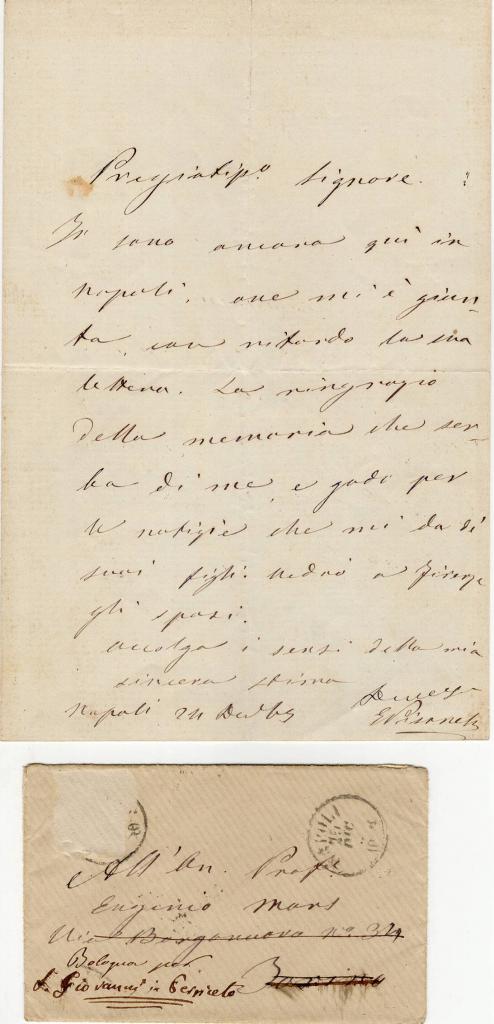 Pregiatis.º Signore.
Io sono ancora quì in
Napoli, ove mi è giun-
ta con ritardo la sua
lettera. La ringrazio
della memoria che ser-
ba di me, e godo per
le notizie che mi da di
suoi figli. Vedrò a Firenze
gli sposi.
Accolga i sensi della mia
sincera stima
Napoli 24
NAPOLI
DIC
All'On. Prof.
Eugenio
Via Borgonuovo Nº 324
Bologna per
S. Giovanni in Persiceto